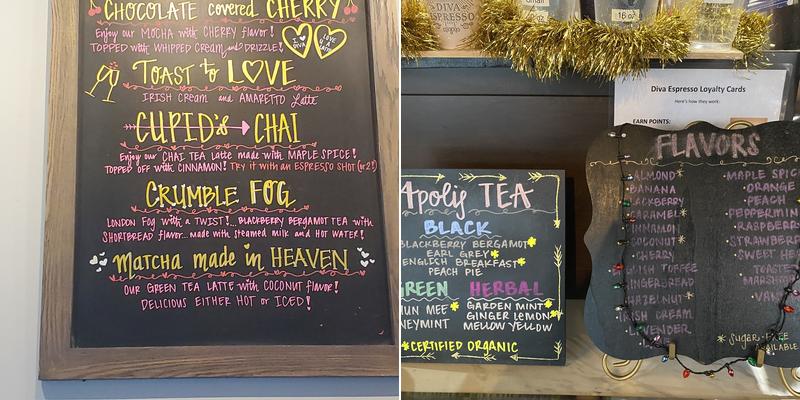 CHOCOLATE covered CHERRY
Enjoy our MOCHA with CHERRY flavor!
TOPPED with WHIPPED Cream and DRIZZLE!
TOAST to LOVE
IRISH CREAM and AMARETTO Latte
CUPID'S CHAI
Enjoy our CHAI TEA Latte made with MAPLE SPICE!
TOPPED OFF with CINNAMON! TRY it with an ESPRESSO SHOT (or 2!)
CRUMBLE FOG
LONDON Fog with a TWIST!... BLACKBERRY BERGAMOT TEA with
SHORTBREAD flavor... made with steamed milk and HOT WATER!
Matcha made in HEAVEN
OUR GREEN TEA LATTE with COCONUT flavor!
DELICIOUS EITHER HOT or ICED!
DIVA
ESPRESSO
16 oz
Diva Espresso Loyalty Cards
Here's how they work:
EARN POINTS:
Apolis TEA
BLACK
BLACKBERRY BERGAMOT
EARL GREY
ENGLISH BREAKFAST
PEACH PIE
GREEN
HUN MEE
NEYMINT
HERBAL
GARDEN MINT
GINGER LEMON
MELLOW YELLOW
*CERTIFIED ORGANIC
FLAVORS
ALMOND*
BANANA
LACKBERRY
ARAMEL*
INNAMON
COCONUT*
CHERRY
GLISH TOFFEE
INGERBREAD
HAZELNUT*
IRISH CREAM
VENDER
MAPLE SPIC
ORANGE
PEACH
PEPPERMIN
RASPBERR
STRAWBERR
SWEET HE
TOASTE
MARSHM
VAN
*SUGAR-FREE
AVAILABLE